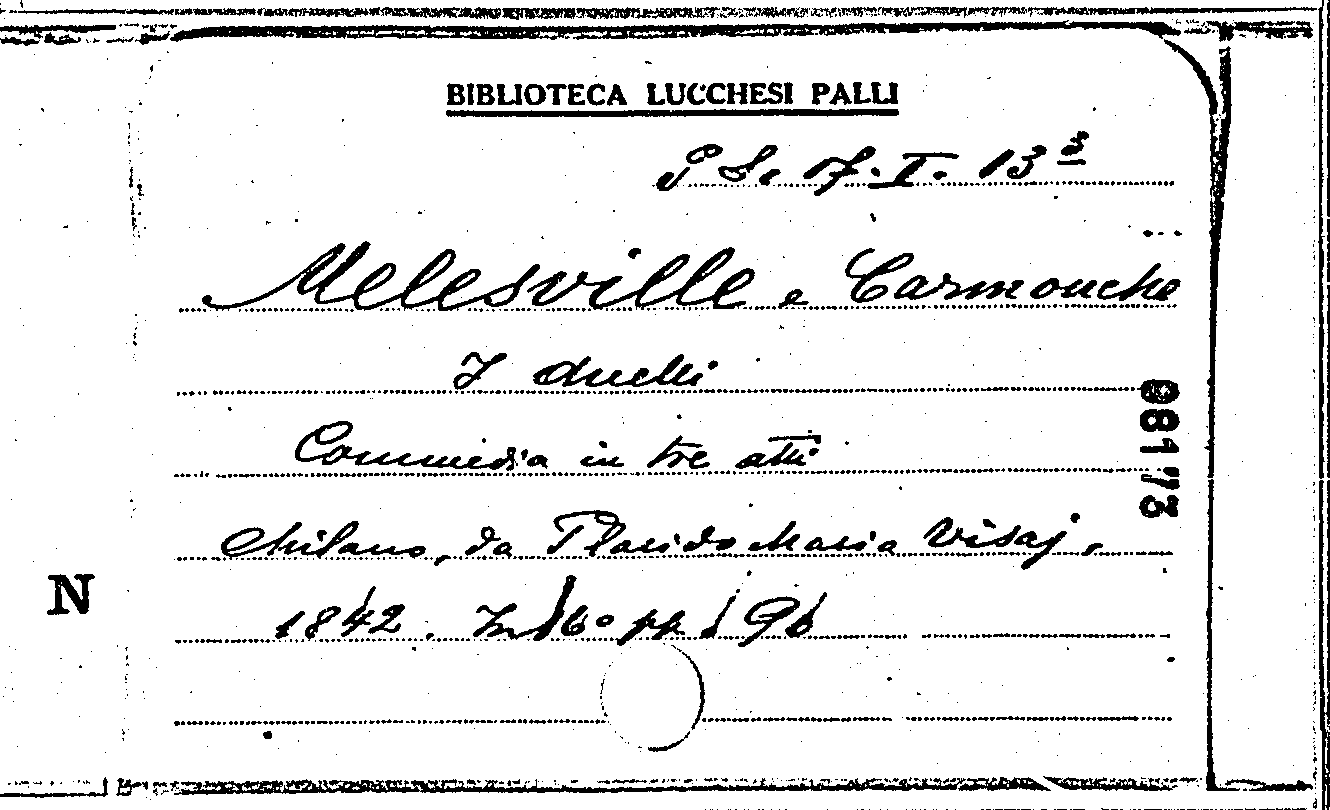 BIBLIOTECA LUCCHESI PALLI
P S. 17. I. 13 3
Melesville e Carmouche
I duelli
Commedia in tre atti
08173
Milano, da Placido Maria Visaj,
N
1842. In 16° pp 96